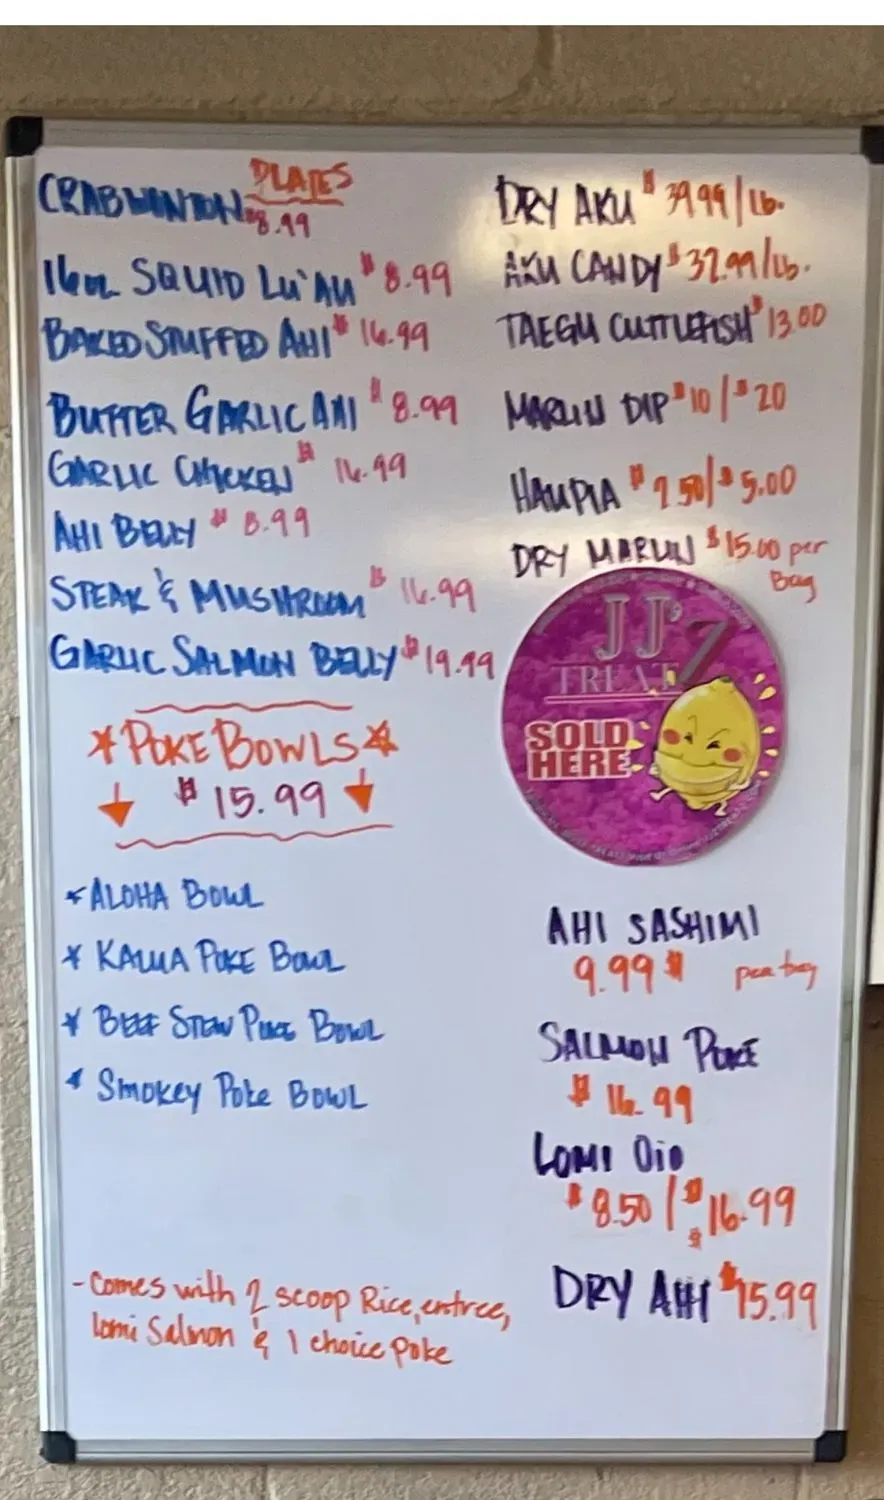 PLATES
CRABWONTON $8.99
16oz SQUID LU'AU $8.99
BAKED STUFFED AHI $16.99
BUTTER GARLIC AHI $8.99
GARLIC CHICKEN $16.99
AHI BELLY $8.99
STEAK & MUSHROOM $16.99
GARLIC SALMON BELLY $19.99
POKE BOWLS
$15.99
* ALOHA BOWL
* KALUA POKE BOWL
* BEEF STEW POKE BOWL
* SMOKEY POKE BOWL
- Comes with 2 scoop Rice, entree,
lomi Salmon & 1 choice poke
DRY AKU $39.99/lb.
AKU CANDY $37.99/lb.
TAEGU CUTTLEFISH $13.00
MARLIN DIP $10/$20
HAUPIA $2.50/$5.00
DRY MARLIN $15.00 per
Bag
JJ'Z
TREATZ
SOLD
HERE
AHI SASHIMI
9.99$ per tray
SALMON POKE
$16.99
LOMI OIO
$8.50/$16.99
DRY AHI $15.99